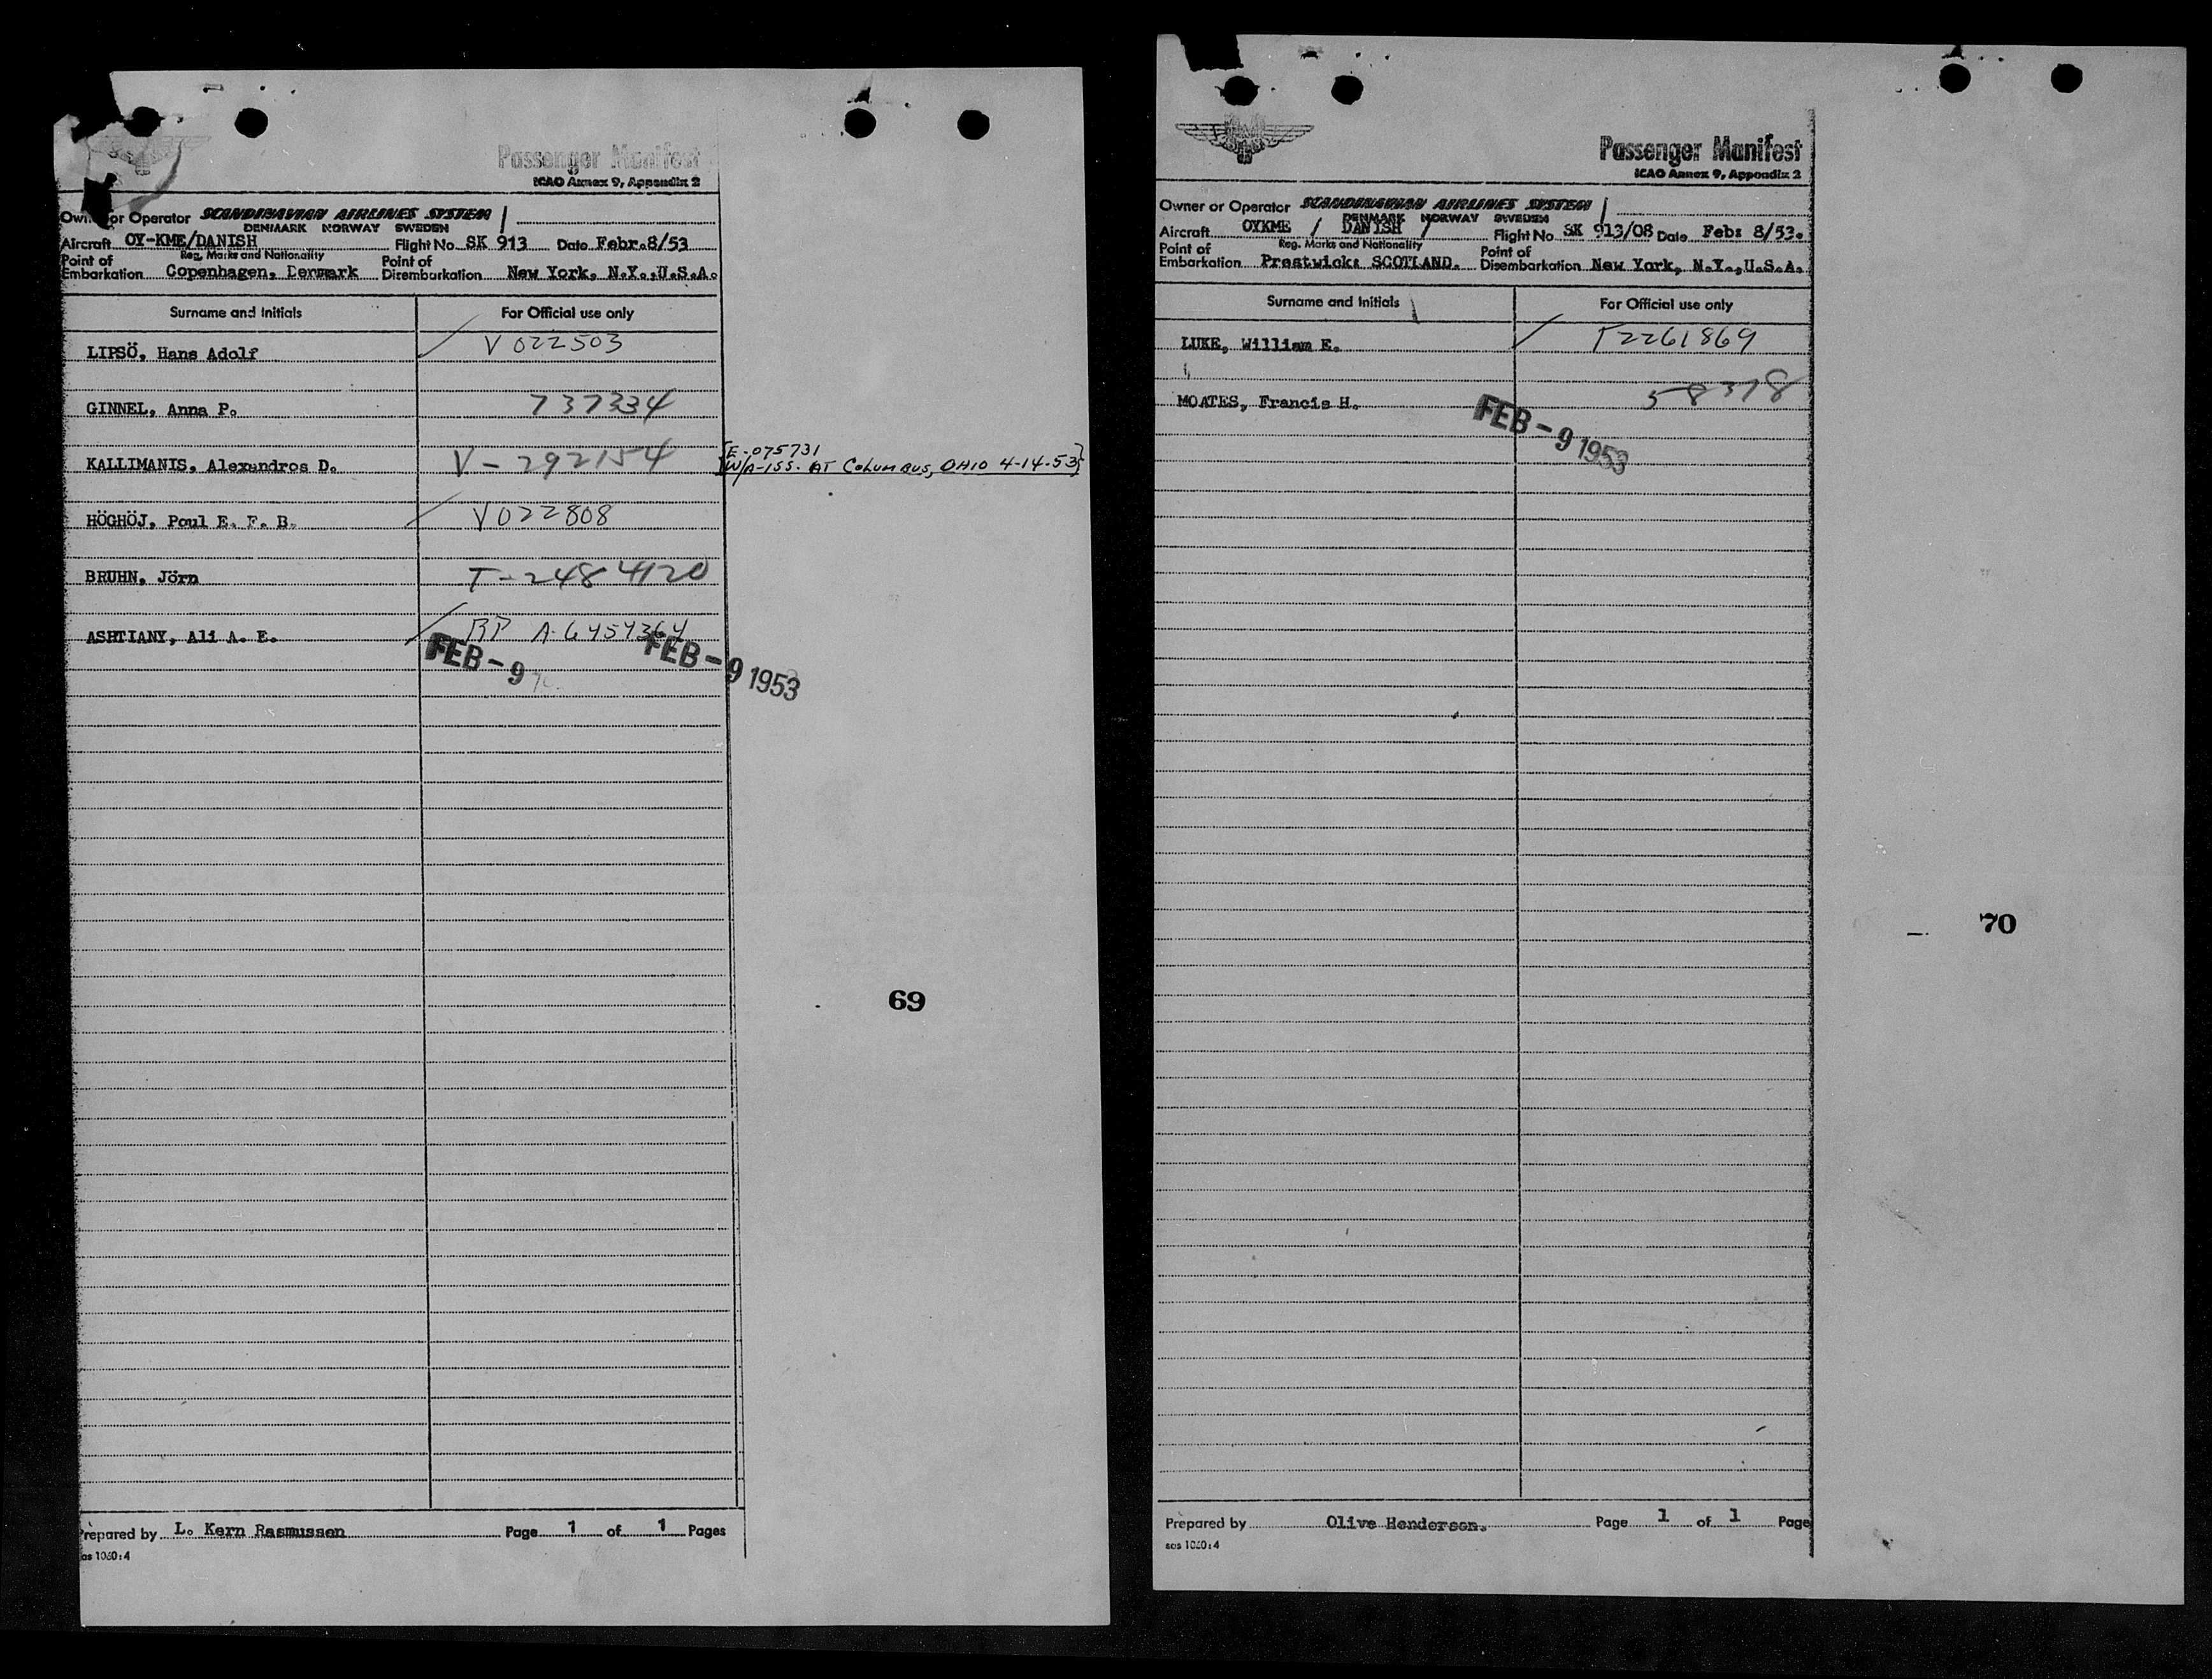 Passenger Manifest
ICAO Annex 9, Appendix 2
Owner or Operator SCANDINAVIAN AIRLINES SYSTEM
DENMARK NORWAY SWEDEN
Aircraft OY-KME/DANISH Flight No SK 913 Date Febr.8/53
Reg. Marks and Nationality
Point of Embarkation Copenhagen, Denmark Point of Disembarkation New York, N.Y.,U.S.A.
Surname and Initials For Official use only
LIPSÖ, Hans Adolf V022503
GINNEL, Anna P. 737334
KALLIMANIS, Alexandros D. V-292154 [E-075731
W/A-ISS. AT COLUMBUS, OHIO 4-14-53]
HÖGHÖJ, Poul E. F. B. V022808
BRUHN, Jörn T-2484120
ASHTIANY, Ali A. E. RP A-6457364
FEB-9 FEB-9 1953
69
Prepared by L. Kern Rasmussen Page 1 of 1 Pages
as 1060:4
Passenger Manifest
ICAO Annex 9, Appendix 2
Owner or Operator SCANDINAVIAN AIRLINES SYSTEM
DENMARK NORWAY SWEDEN
Aircraft OYKME / DANISH / Flight No SK 913/08 Date Feb: 8/53.
Reg. Marks and Nationality
Point of Embarkation Prestwick: SCOTLAND. Point of Disembarkation New York, N.Y.,U.S.A.
Surname and Initials For Official use only
LUKE, William E. T2261869
MOATES, Francis H. 58378
FEB-9 1953
70
Prepared by Olive Henderson. Page 1 of 1 Page
sas 1060:4